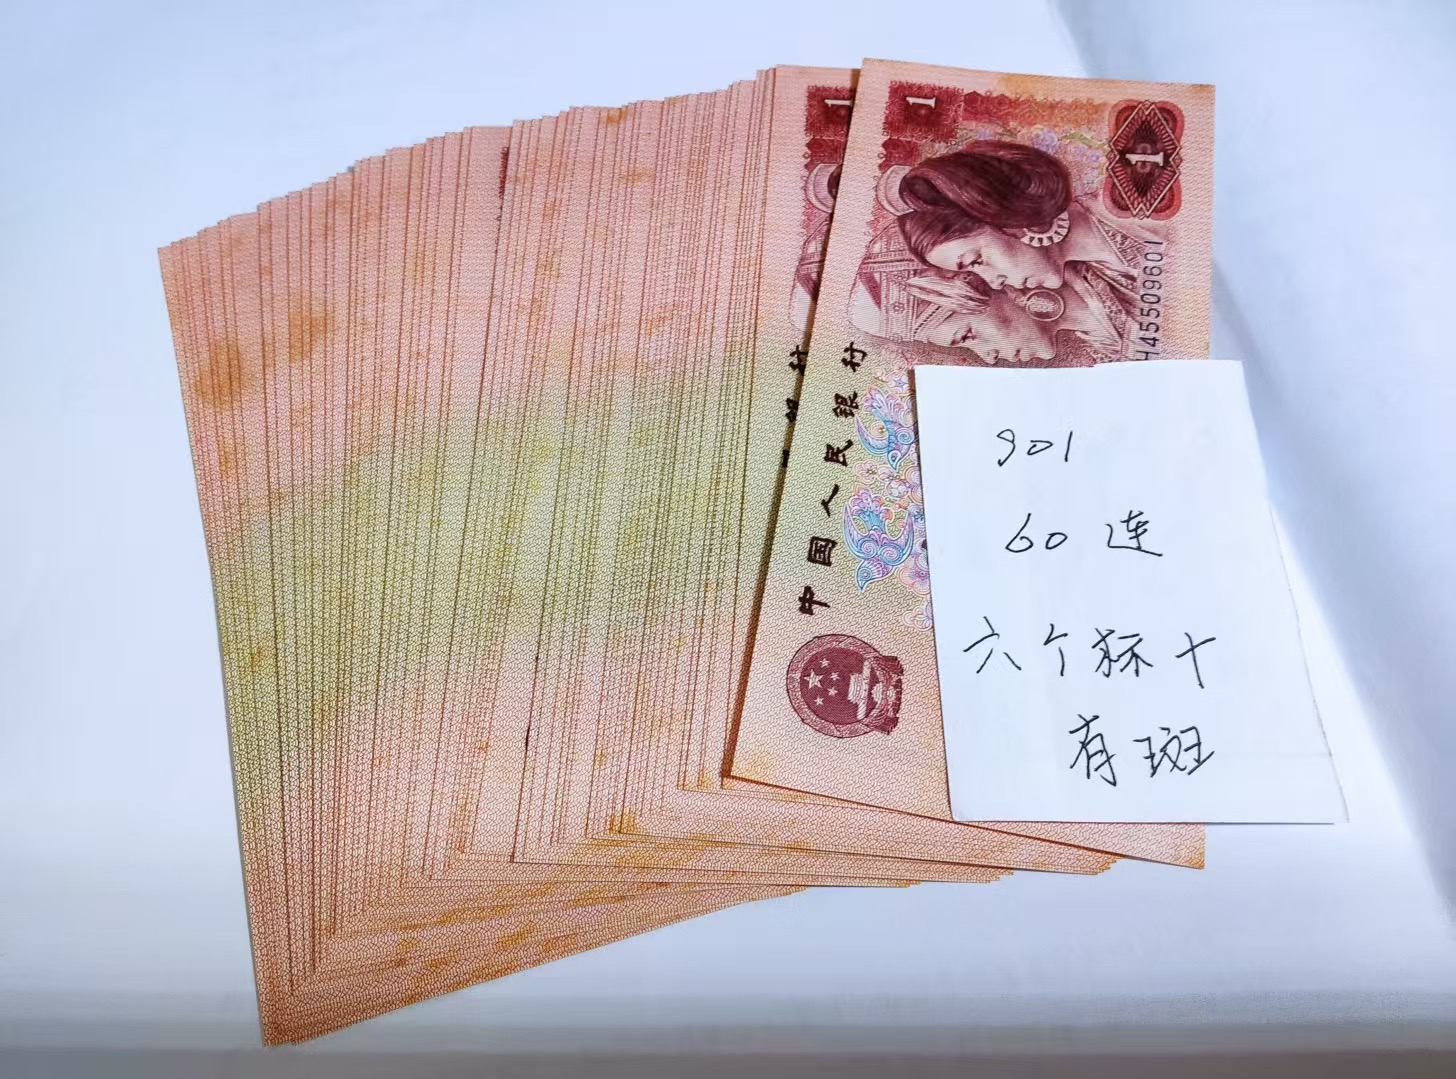 1
1
1
H45509601
中国人民银行
行
901
60 连
六个标十
有斑